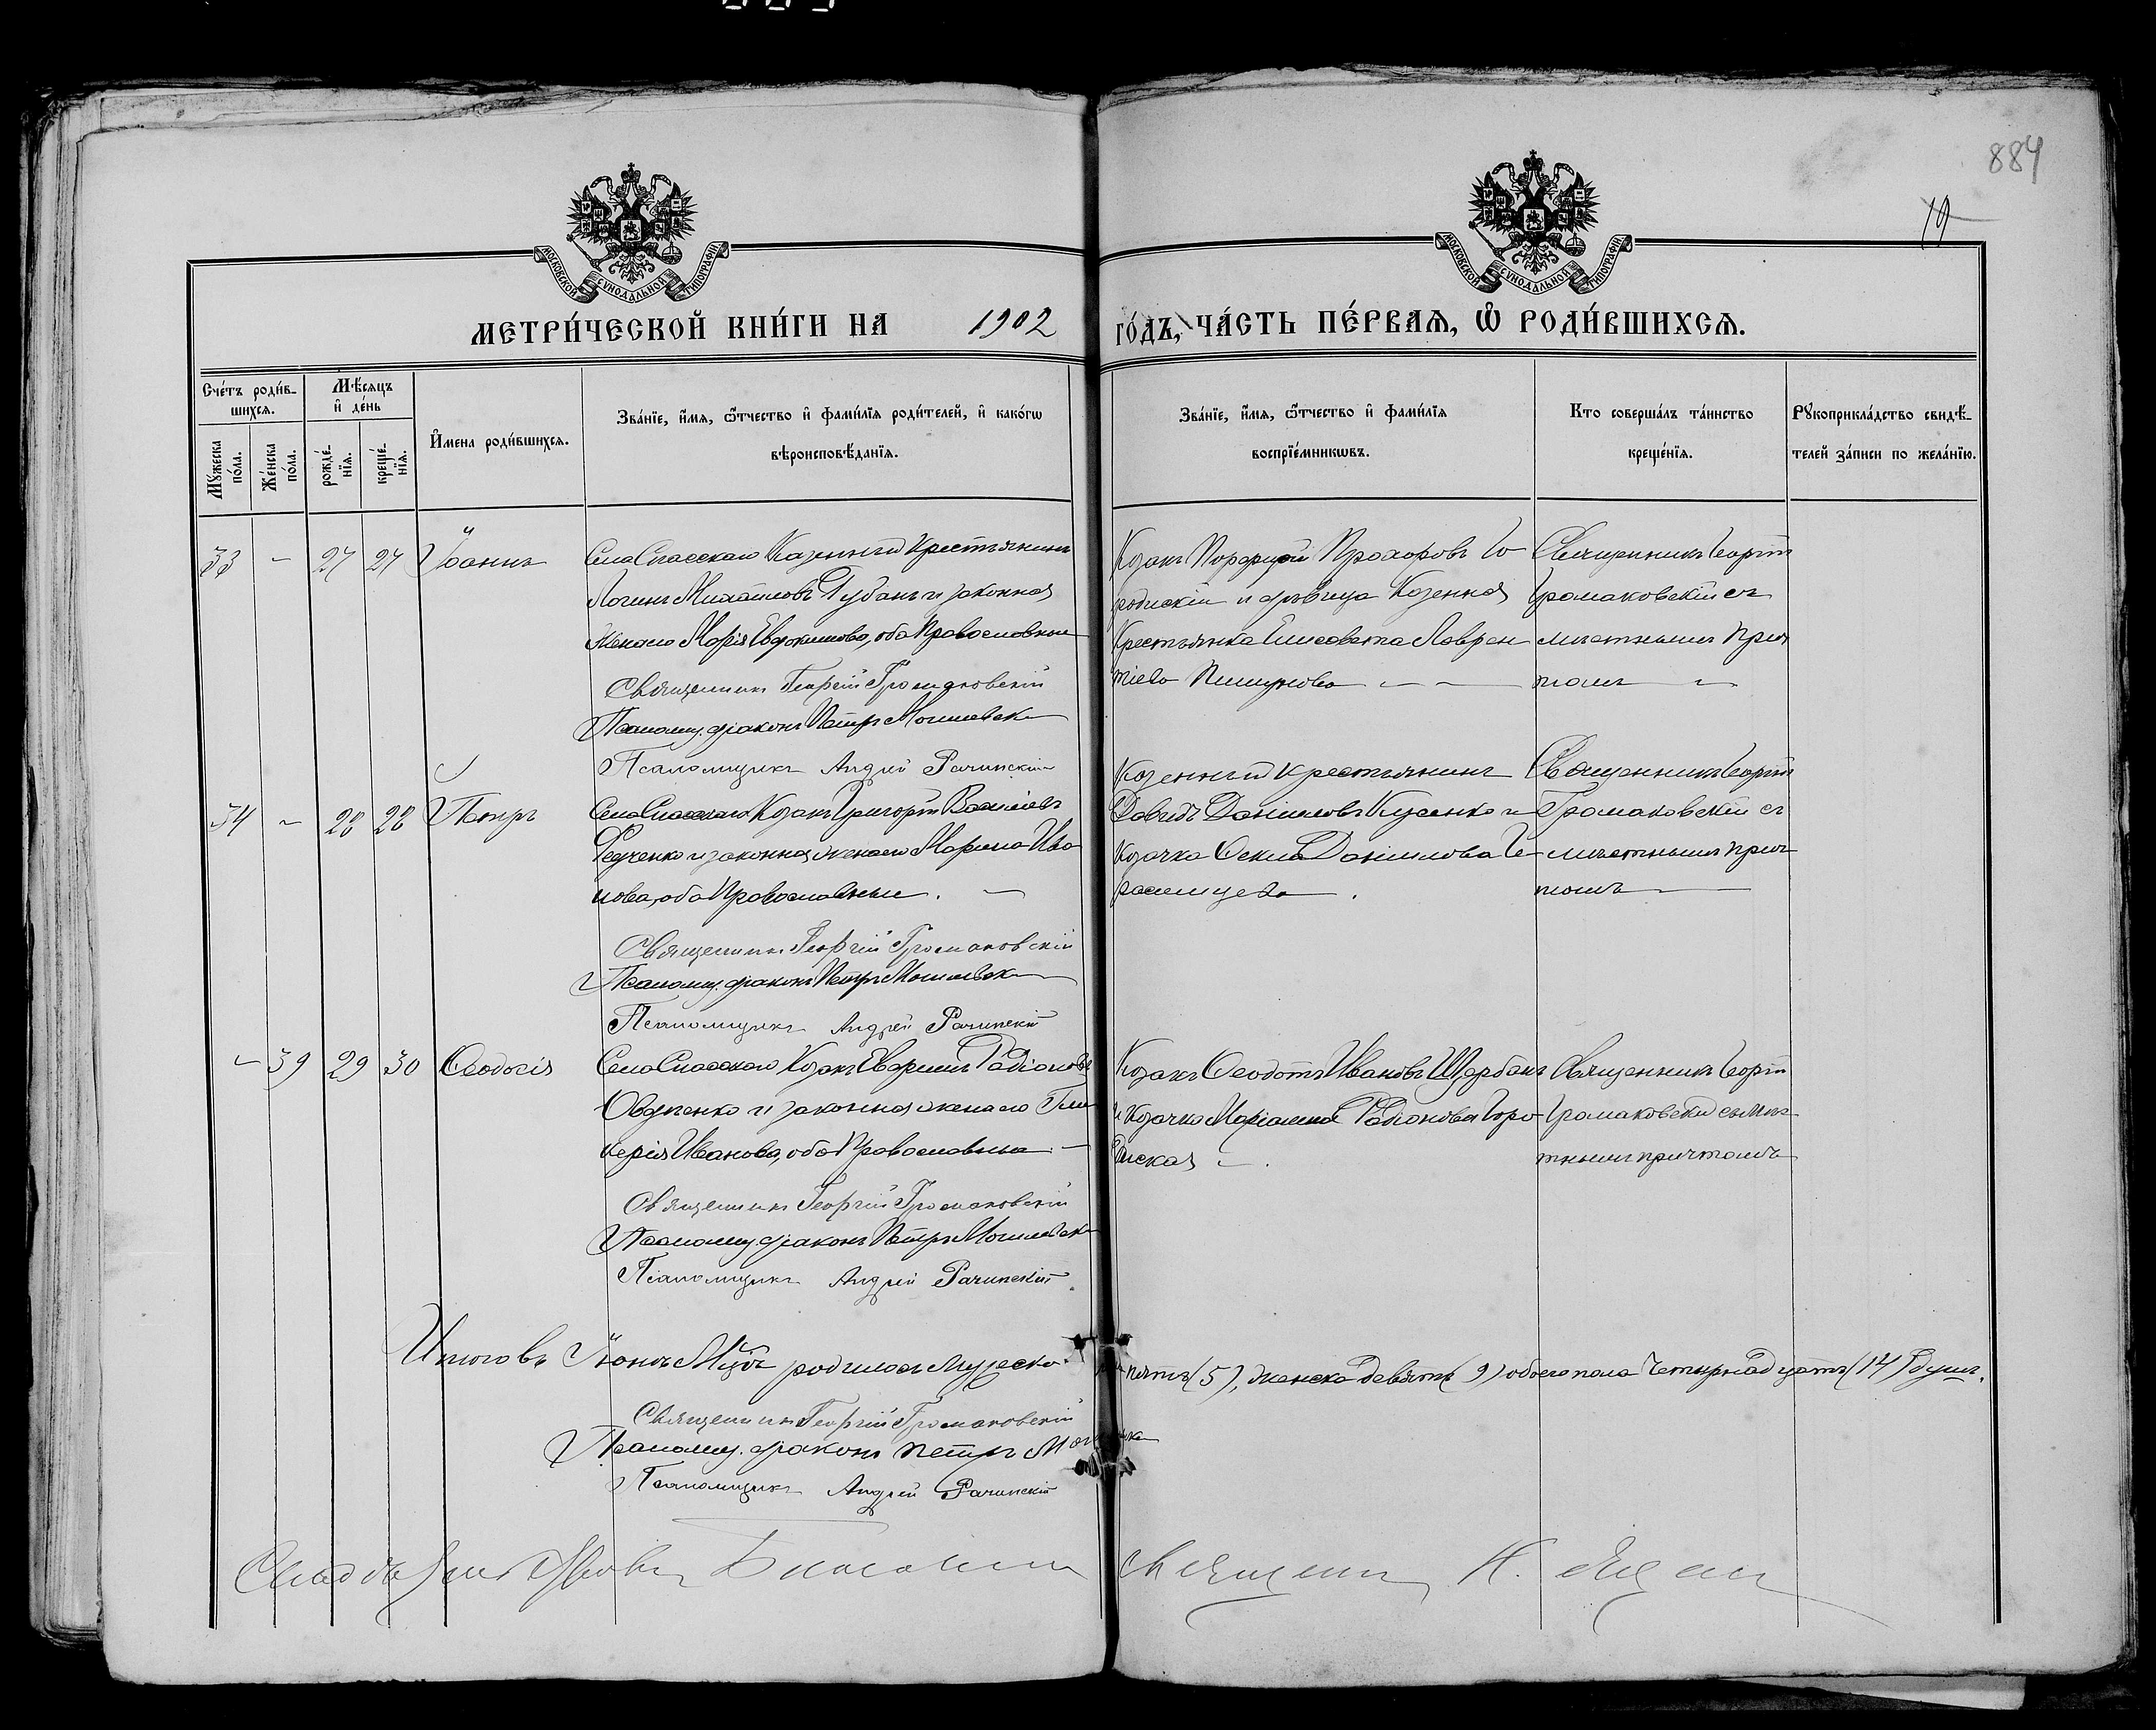 884
19
МОСКОВСКОЙ СУНОДАЛЬНОЙ ТИПОГРАФІИ
МОСКОВСКОЙ СУНОДАЛЬНОЙ ТИПОГРАФІИ
МЕТРИ́ЧЕСКОЙ КНИ́ГИ НА 1902 ГО́ДЪ, ЧА́СТЬ ПЕ́РВАЯ, Ѽ РОДИ́ВШИХСЯ.
Сче́тъ роди́в-
шихся.
Мꙋ́жеска по́ла.
Же́нска по́ла.
Мѣ́сяцъ
и҆ де́нь
рожде́-
нїя.
креще́-
нїя.
И҆мена роди́вшихся.
Зва́нїе, и҆́мя, ѻ҆́тчество и҆ фами́лїя роди́телей, и҆ како́гѡ
вѣроисповѣ́данїя.
Зва́нїе, и҆́мя, ѻ҆́тчество и҆ фами́лїя
воспрїе́мникѡвъ.
Кто соверша́лъ та́инство
креще́нїя.
Рꙋкоприкла́дство свидѣ́-
телей за́писи по жела́нїю.
33 - 27 27 Іоаннъ
Села Спасскаго Казенный крестьянинъ
Логинъ Михайловъ Губань и законная
жена его Марія Евдокимова, оба Православные
Священникъ Георгій Громаковскій
Псаломщ. діаконъ Петръ Могилевск
Псаломщикъ Андрей Рачинскій
Козакъ Порфирій Прохоровъ Го
родискій и дѣвица Казенная
Крестьянка Елисавета Лаврен
тіева
Священникъ Георгій
Громаковскій съ
мѣстнымъ прич
томъ
34 - 28 28 Петръ
Села Спасскаго Козакъ Григорій Васильевъ
Федченко и законная жена его Марина Ива
нова, оба Православные.
Священникъ Георгій Громаковскій
Псаломщ. діаконъ Петръ Могилевск
Псаломщикъ Андрей Рачинскій
Казенный крестьянинъ
Давидъ Даніиловъ Куценко и
Козачка Данилова Ге
расимцева.
Священникъ Георгій
Громаковскій съ
мѣстнымъ прич
томъ
- 39 29 30 Ѳеодосія
Села Спасскаго Козакъ Радіоновъ
Овдіенко и законная жена его Гли
керія Иванова, оба Православные
Священникъ Георгій Громаковскій
Псаломщ. діаконъ Петръ Могилевск
Псаломщикъ Андрей Рачинскій
Козакъ Ѳеодотъ Ивановъ Щербакъ
и Козачка Маріанна Радіонова Горо
диская
Священникъ Георгій
Громаковскій съ мѣс
тнымъ причтомъ
Итого въ Маѣ родилось мужеска пять (5), женска девять (9) обоего пола четырнадцать (14) душъ.
Священникъ Георгій Громаковскій
Псаломщ. діаконъ Петръ
Псаломщикъ Андрей Рачинскій